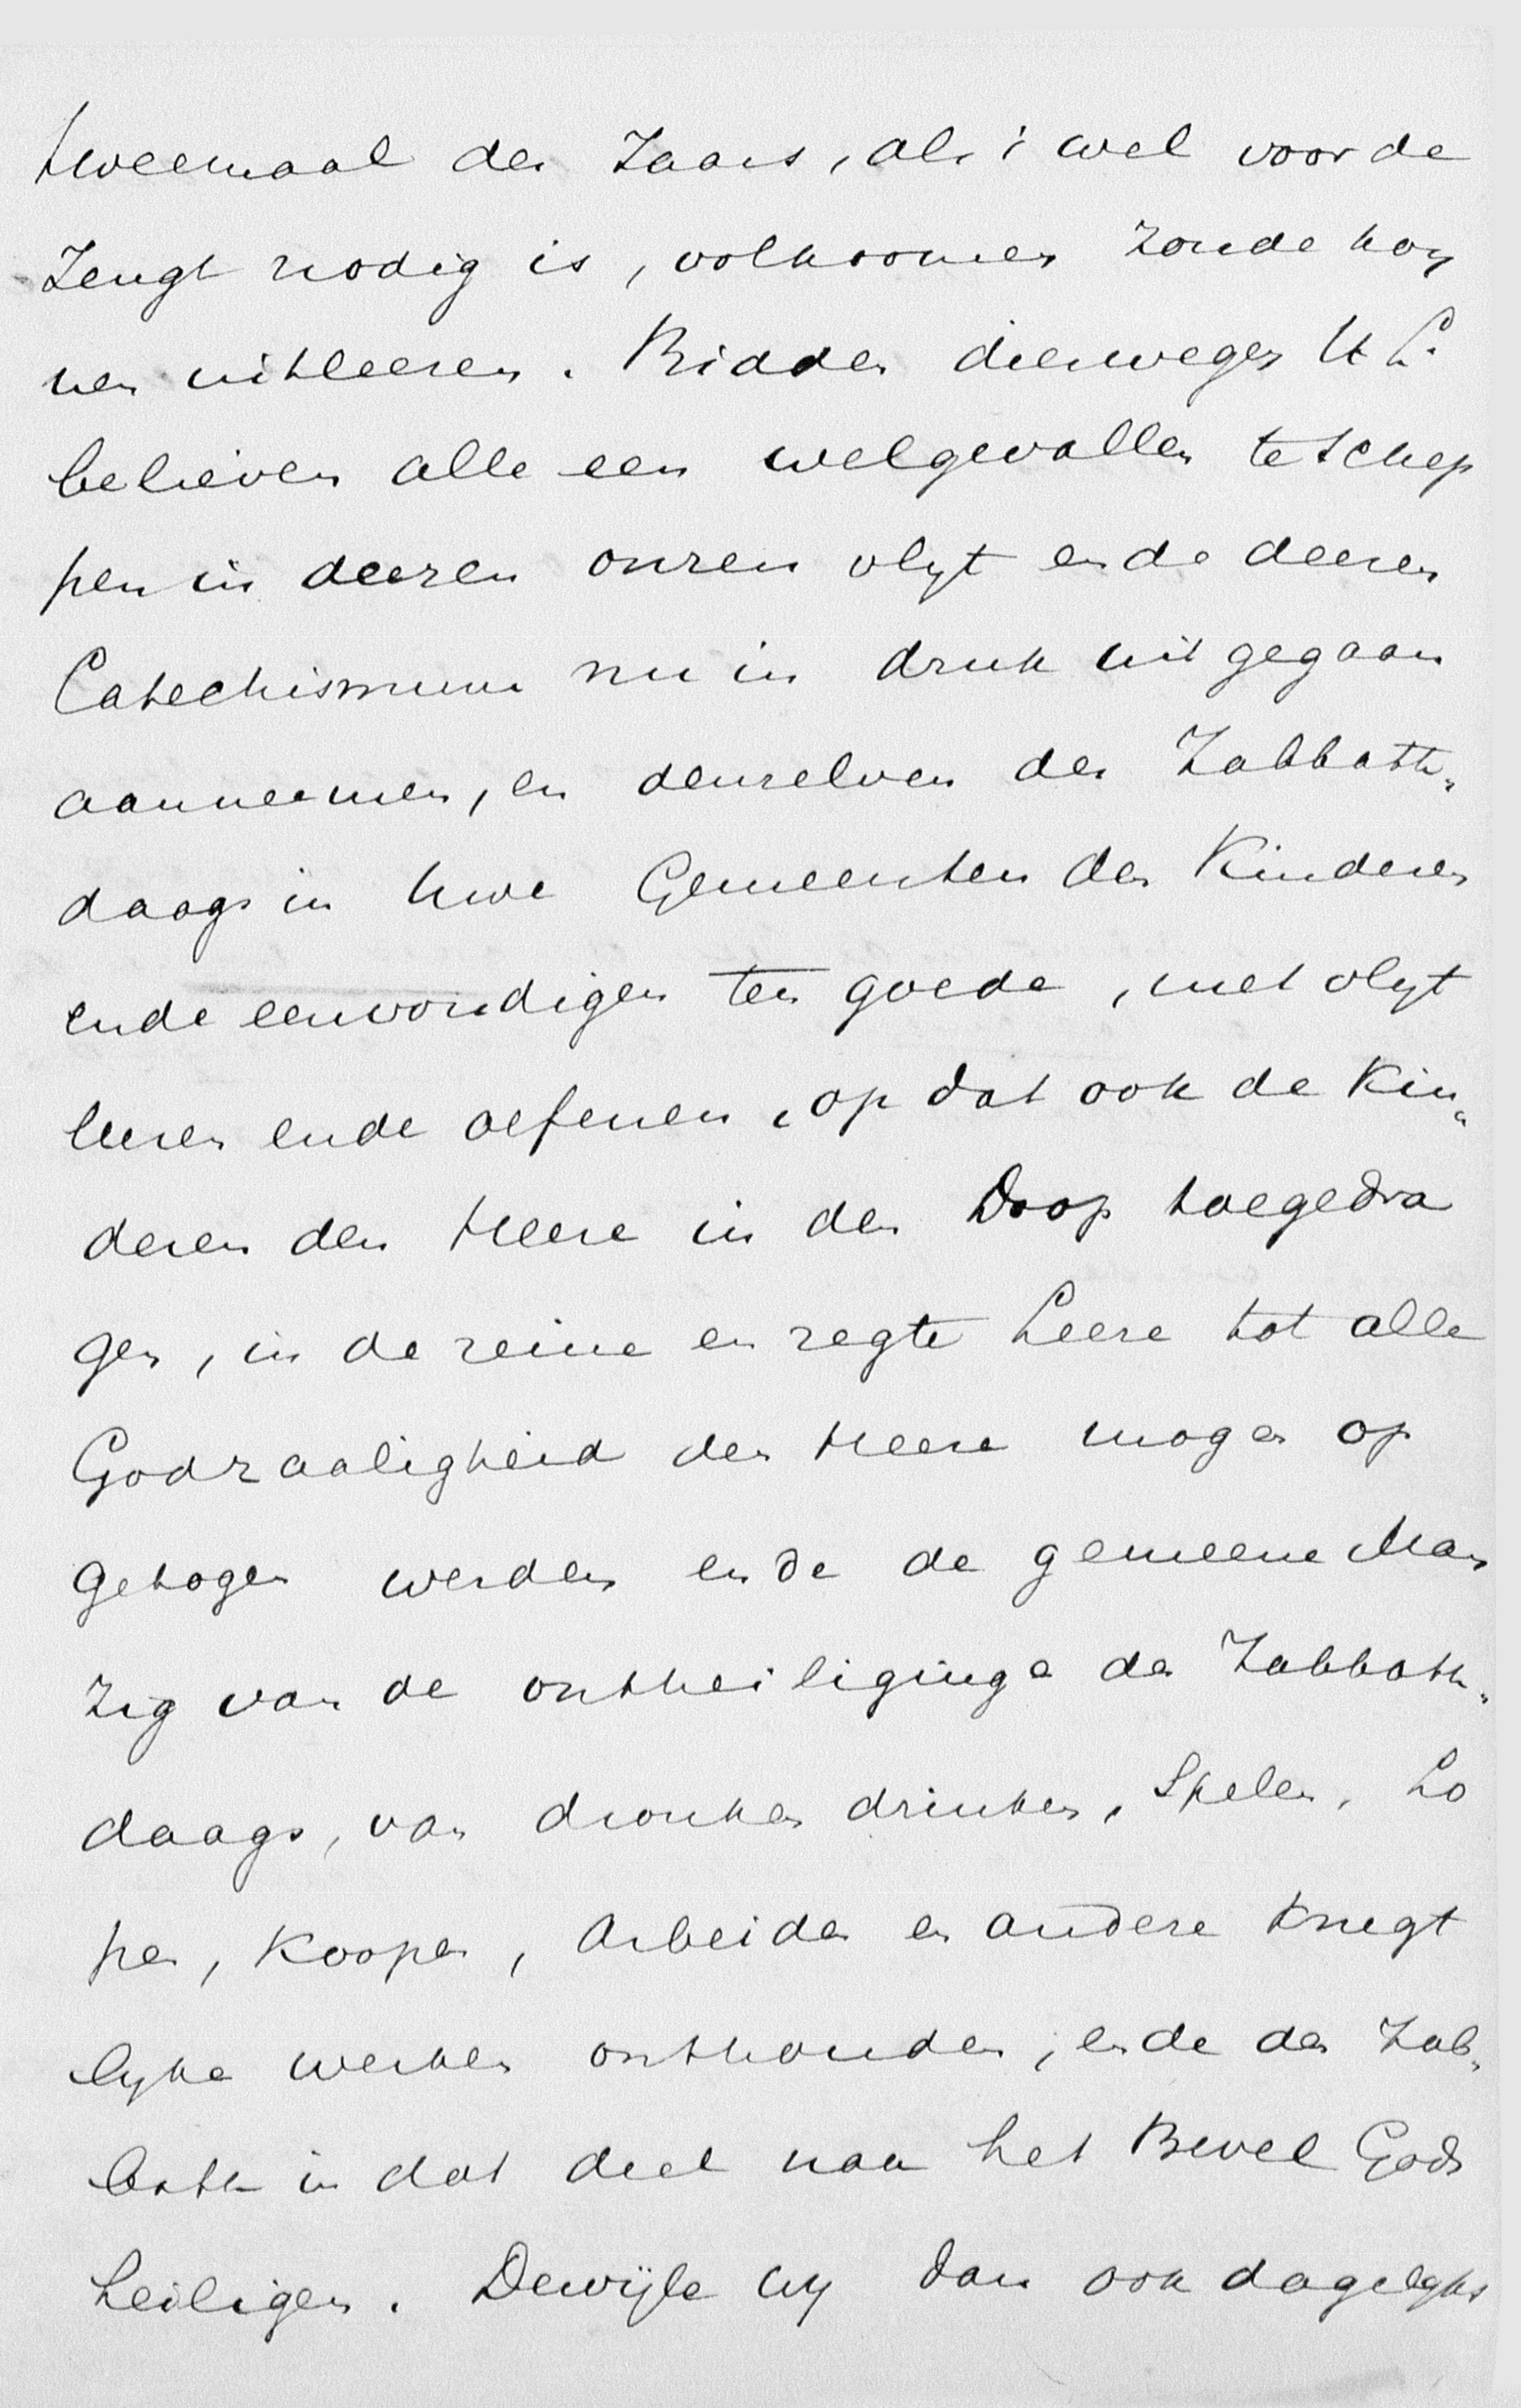 tweemaal des Jaars, als 't wel voor de
Jeugt nodig is, volkoomen zoude kon
nen uitleeren. Bidden dierwegen U L.
believen alle een welgevallen te schep
pen in deezen onzen vlyt ende deezen
Catechismum nu in druk uitgegaan
aanneemen, en denzelven des Zabbath„
daags in Uwe Gemeenten den Kinderen
ende eenvoudigen ten goede, met vlyt
leeren ende oefenen, op dat ook de Kin„
deren den Heere in den Doop toegedra
gen, in de reine en regte Leere tot alle
Godzaaligheid den Heere mogen op
getogen werden ende de gemeene Man
zig van de ontheiliginge des Zabbath„
daags, van dronken drinken, Spelen, Lo
pen, Koopen, Arbeiden en andere knegt
lyke werken onthouden, ende den Zab„
bath in dat deel naa het Bevel Gods
heiligen. Dewijle wy dan ook dagelyks